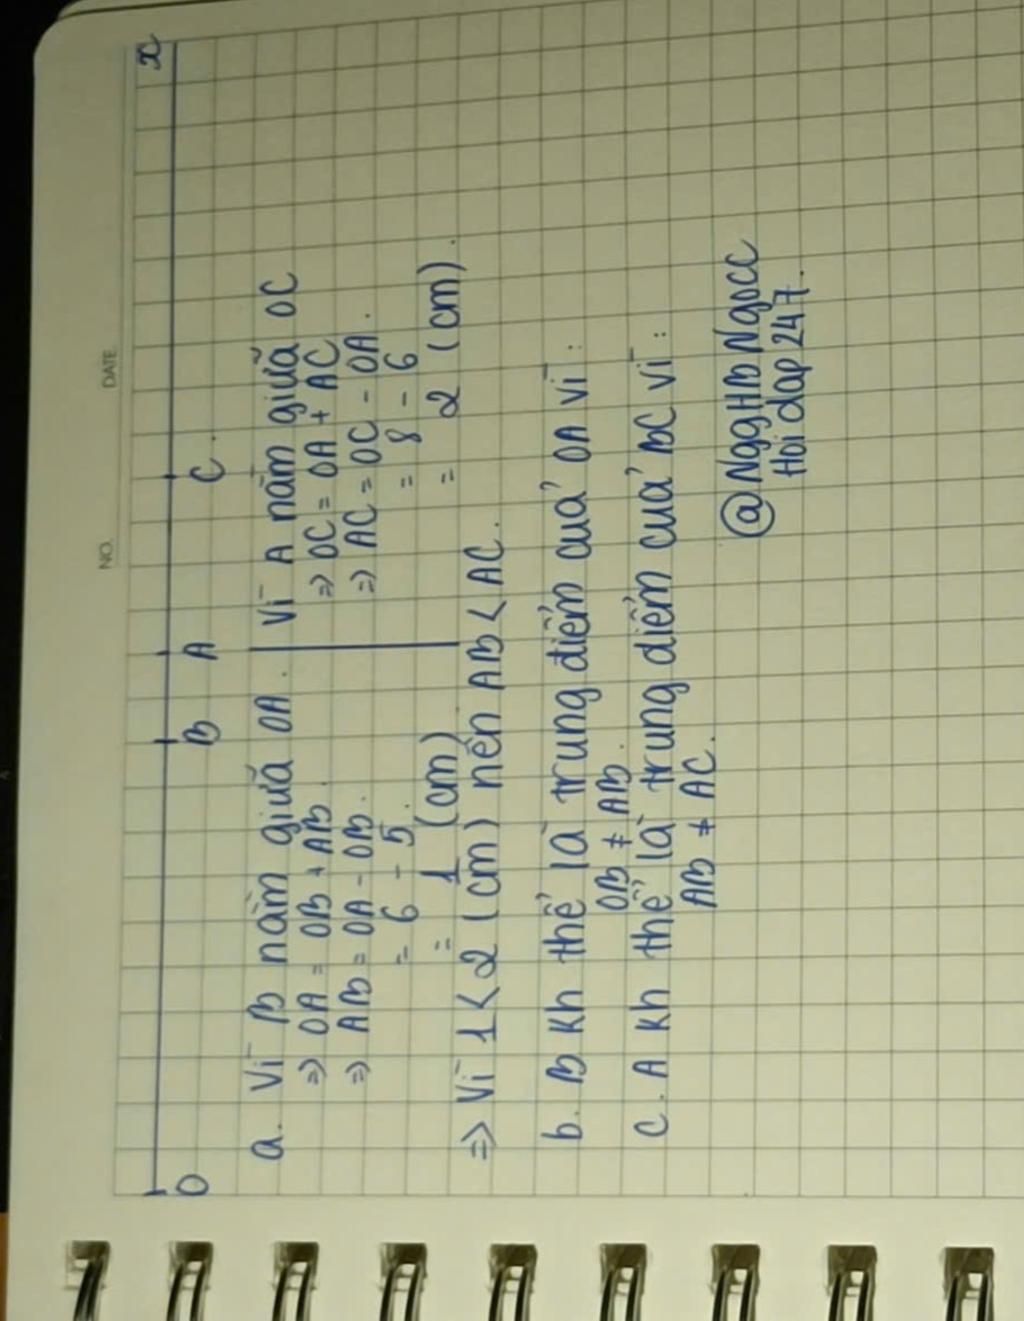 NO. DATE
x
O B A C.
a. Vì B nằm giữa OA.
=> OA = OB + AB.
=> AB = OA - OB.
= 6 - 5.
= 1 (cm)
Vì A nằm giữa OC
=> OC = OA + AC
=> AC = OC - OA.
= 8 - 6
= 2 (cm).
=> Vì 1 < 2 (cm) nên AB < AC.
b. B kh thể là trung điểm của OA vì:
OB ≠ AB.
c. A kh thể là trung điểm của BC vì:
AB ≠ AC.
@NggHBNgocc
Hoi dap 247.